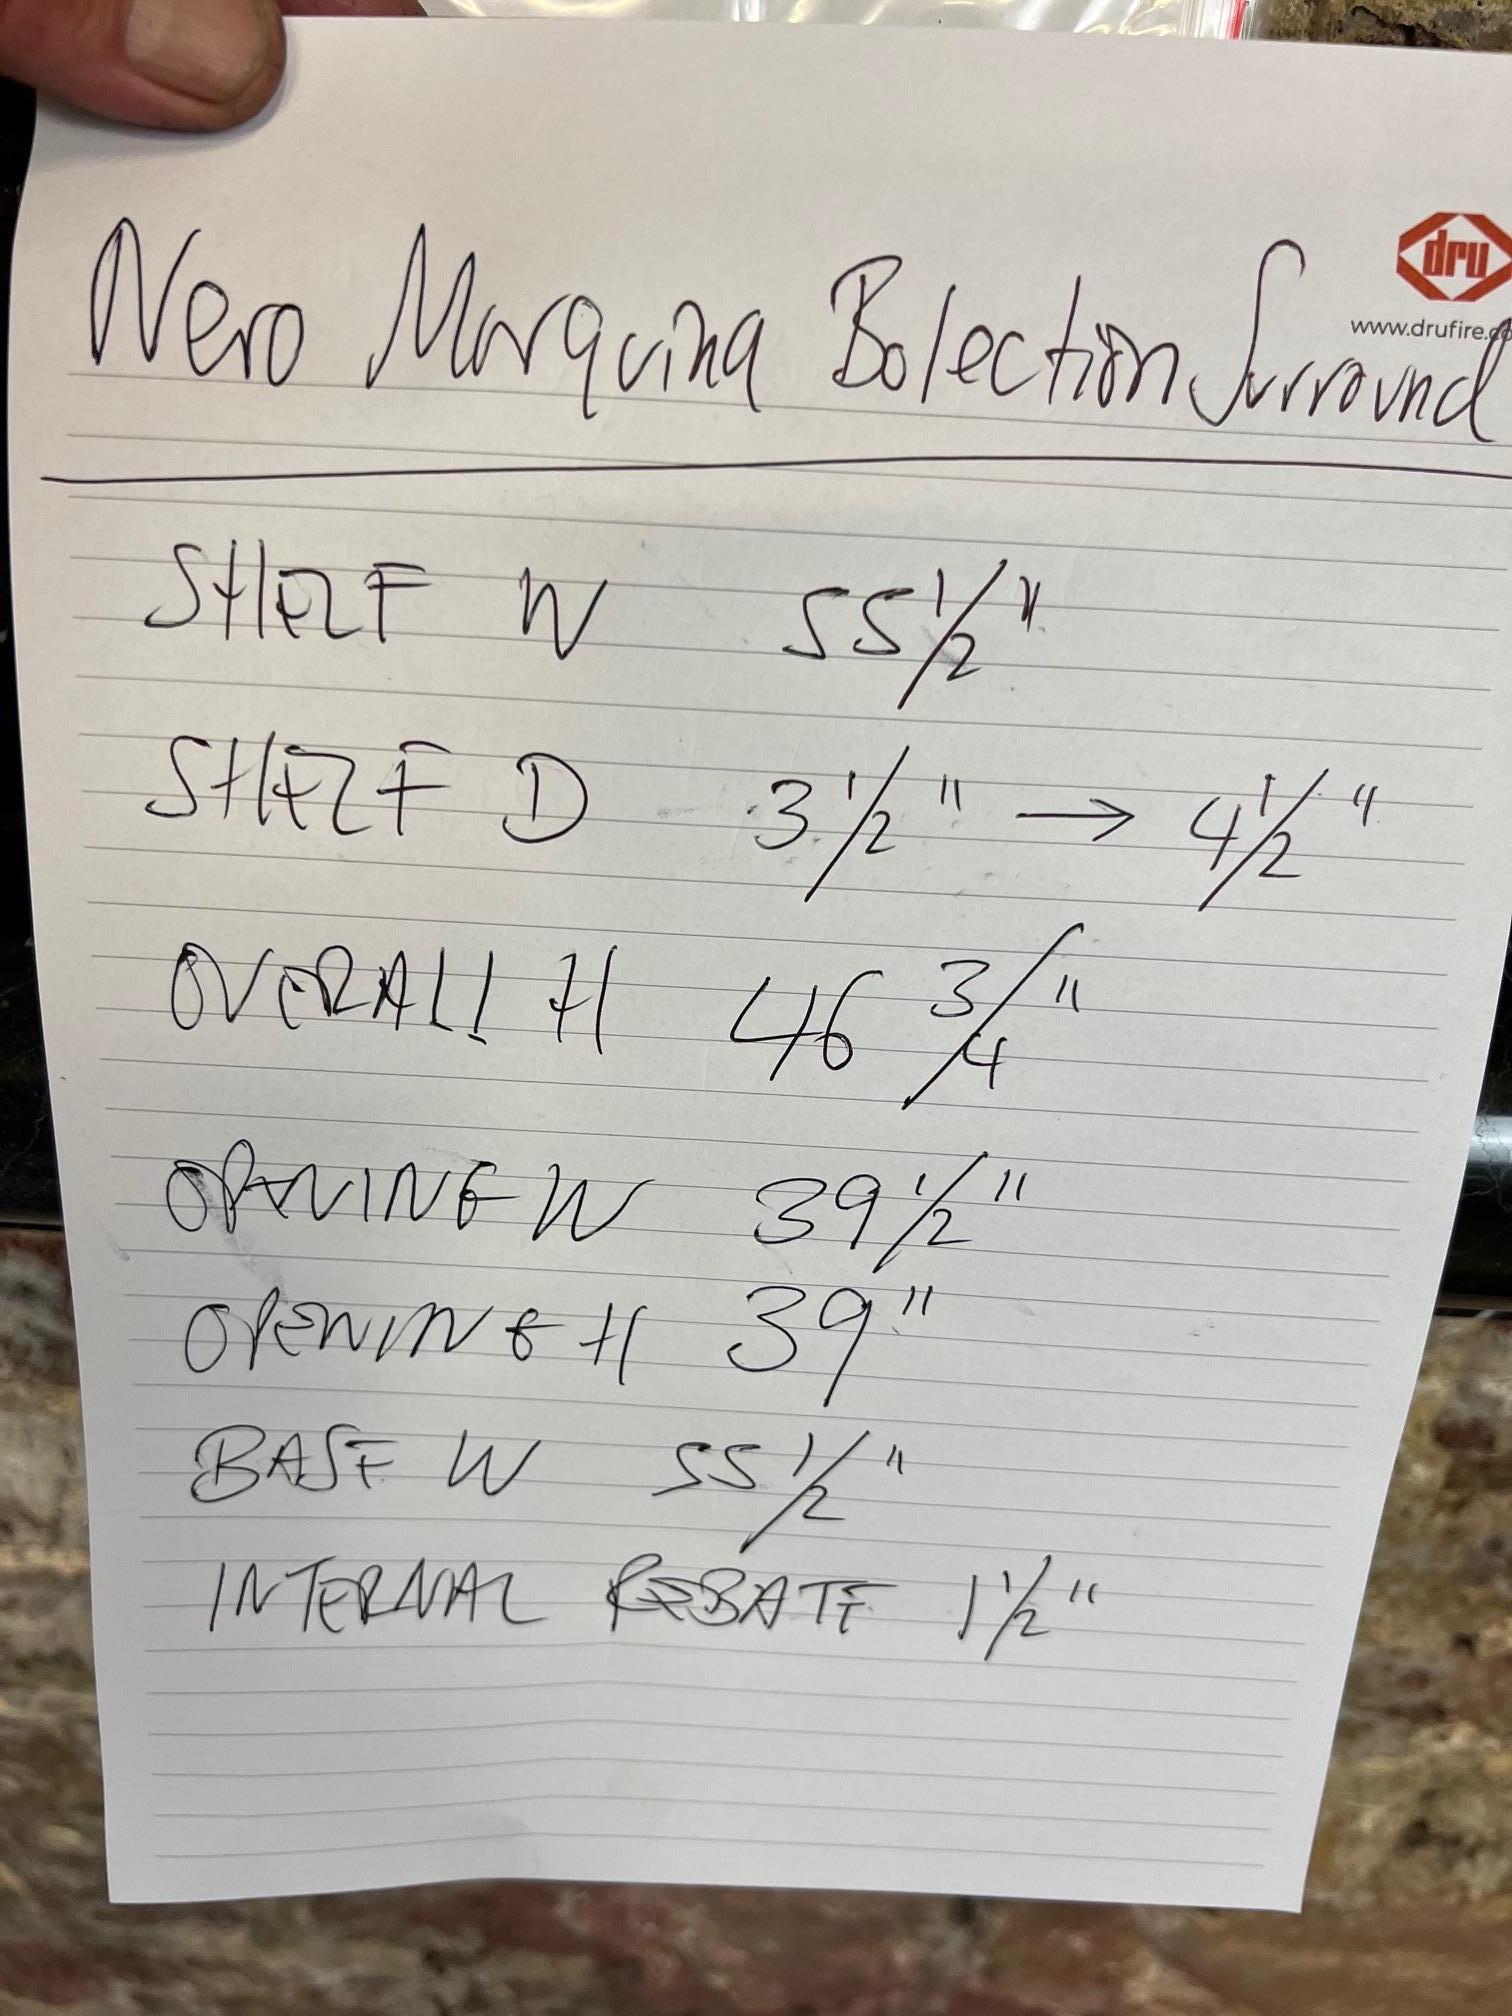 dru
www.drufire.co
Nero Marquina Bolection Surround
SHELF W 55 1/2"
SHELF D 3 1/2" → 4 1/2"
OVERALL H 46 3/4"
OPENING W 39 1/2"
OPENING H 39"
BASE W 55 1/2"
INTERNAL REBATE 1 1/2"